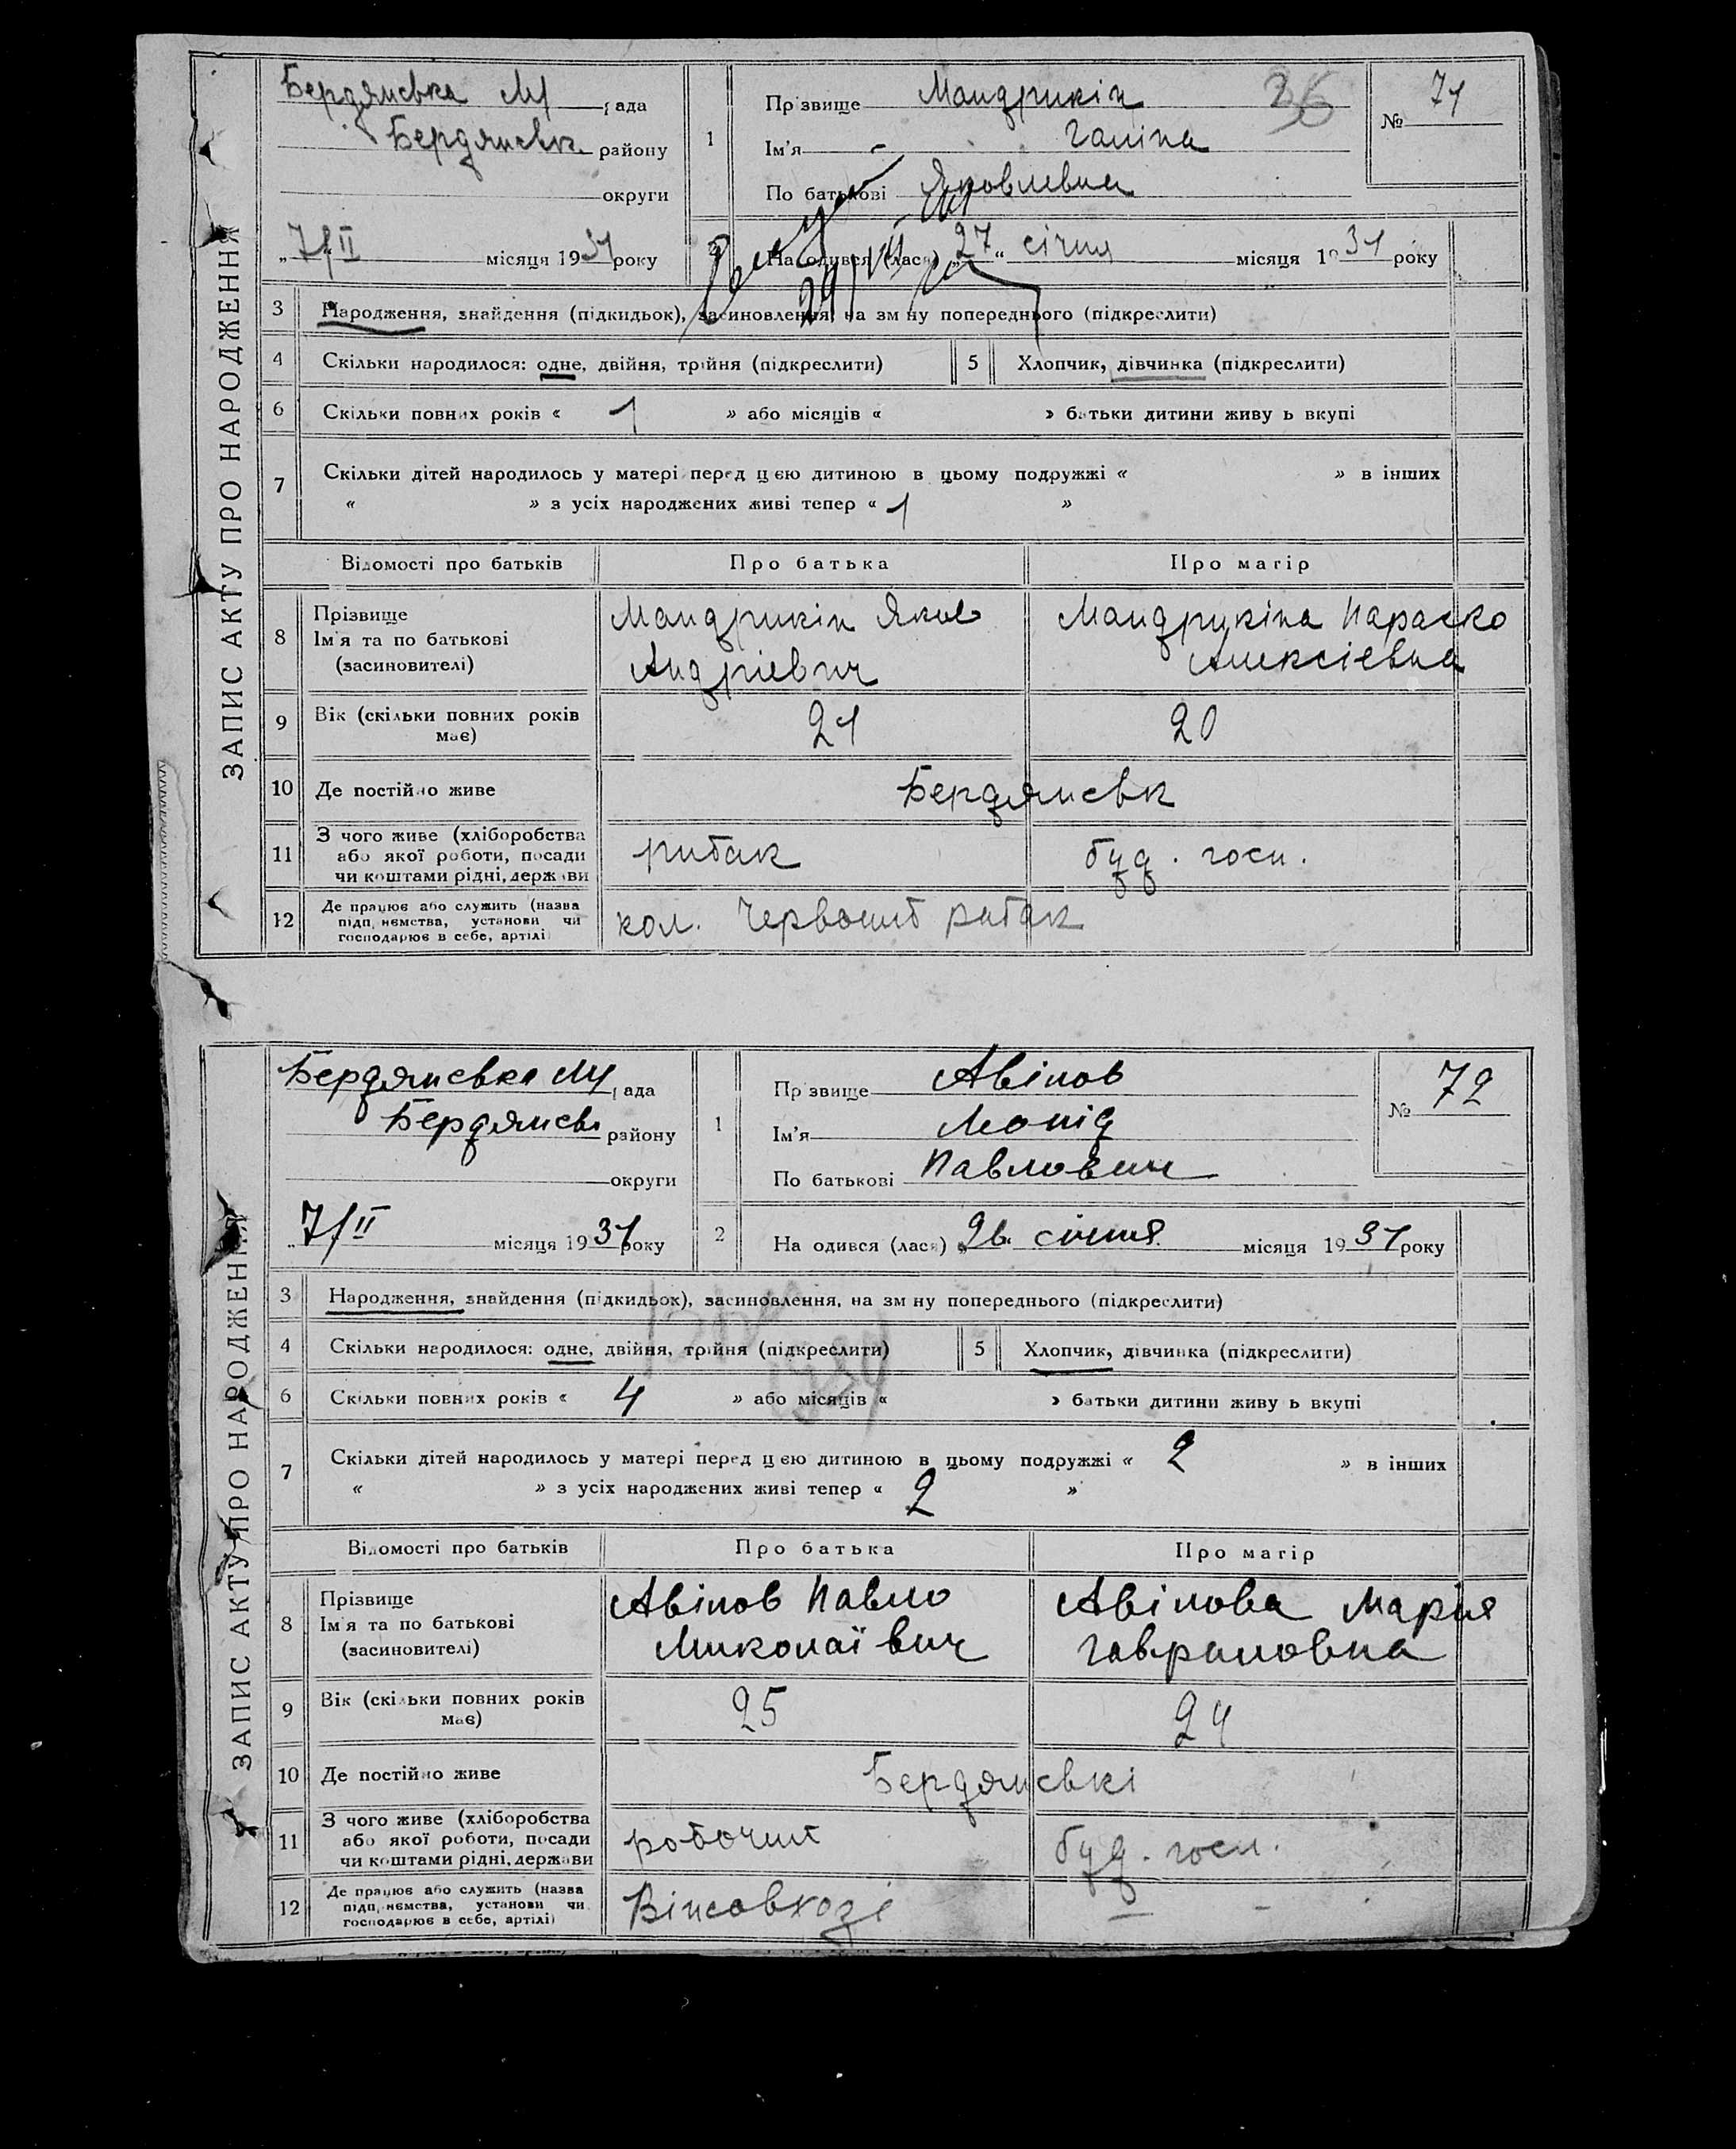 ЗАПИС АКТУ ПРО НАРОДЖЕННЯ
Бердянська рада
Бердянськ району
округи
„7/II місяця 1931 року
1
Прізвище Мандрикін
Ім'я Галіна
По батькові Яковлевна
36
№ 71
На одився (лася) „27“ січня місяця 1931 року
3 Народження, знайдення (підкидьок), засиновлення, на зм ну попереднього (підкреслити)
4 Скільки народилося: одне, двійня, трійня (підкреслити) 5 Хлопчик, дівчинка (підкреслити)
6 Скільки повних років « 1 » або місяців « » батьки дитини живу ь вкупі
7 Скільки дітей народилось у матері перед цєю дитиною в цьому подружжі « » в інших
« » з усіх народжених живі тепер « 1 »
Відомості про батьків Про батька Про матір
8 Прізвище
Ім'я та по батькові
(засиновителі)
Мандрикін Яков
Андрієвич
Мандрукіна Параско
Алексієвна
9 Вік (скільки повних років
має)
21 20
10 Де постійно живе Бердянськ
11 З чого живе (хліборобства
або якої роботи, посади
чи коштами рідні, держави
рибак буд. госп.
12 Де працює або служить (назва
підп, немства, установи чи
господарює в себе, артілі)
кол. Червоний рибак
ЗАПИС АКТУ ПРО НАРОДЖЕННЯ
Бердянська рада
Бердянськ району
округи
„7/II місяця 1931 року
1
Прізвище Авінов
Ім'я Леонід
По батькові Павлович
№ 72
2 На одився (лася) „26. січня місяця 1931 року
3 Народження, знайдення (підкидьок), засиновлення, на зм ну попереднього (підкреслити)
4 Скільки народилося: одне, двійня, трійня (підкреслити) 5 Хлопчик, дівчинка (підкреслити)
6 Скільки повних років « 4 » або місяців « » батьки дитини живу ь вкупі
7 Скільки дітей народилось у матері перед цєю дитиною в цьому подружжі « 2 » в інших
« » з усіх народжених живі тепер « 2 »
Відомості про батьків Про батька Про матір
8 Прізвище
Ім'я та по батькові
(засиновителі)
Авінов Павло
Миколаївич
Авінова Мария
Гавриловна
9 Вік (скільки повних років
має)
25 24
10 Де постійно живе Бердянські
11 З чого живе (хліборобства
або якої роботи, посади
чи коштами рідні, держави
робочий буд. госп.
12 Де працює або служить (назва
підп, немства, установи чи
господарює в себе, артілі)